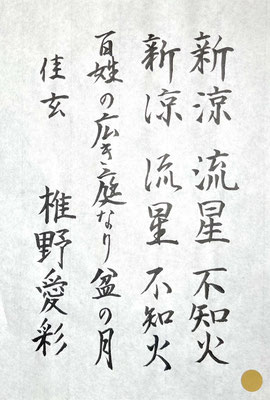 新涼 流星 不知火
新涼 流星 不知火
百姓の広き庭なり盆の月
佳玄 椎野愛彩